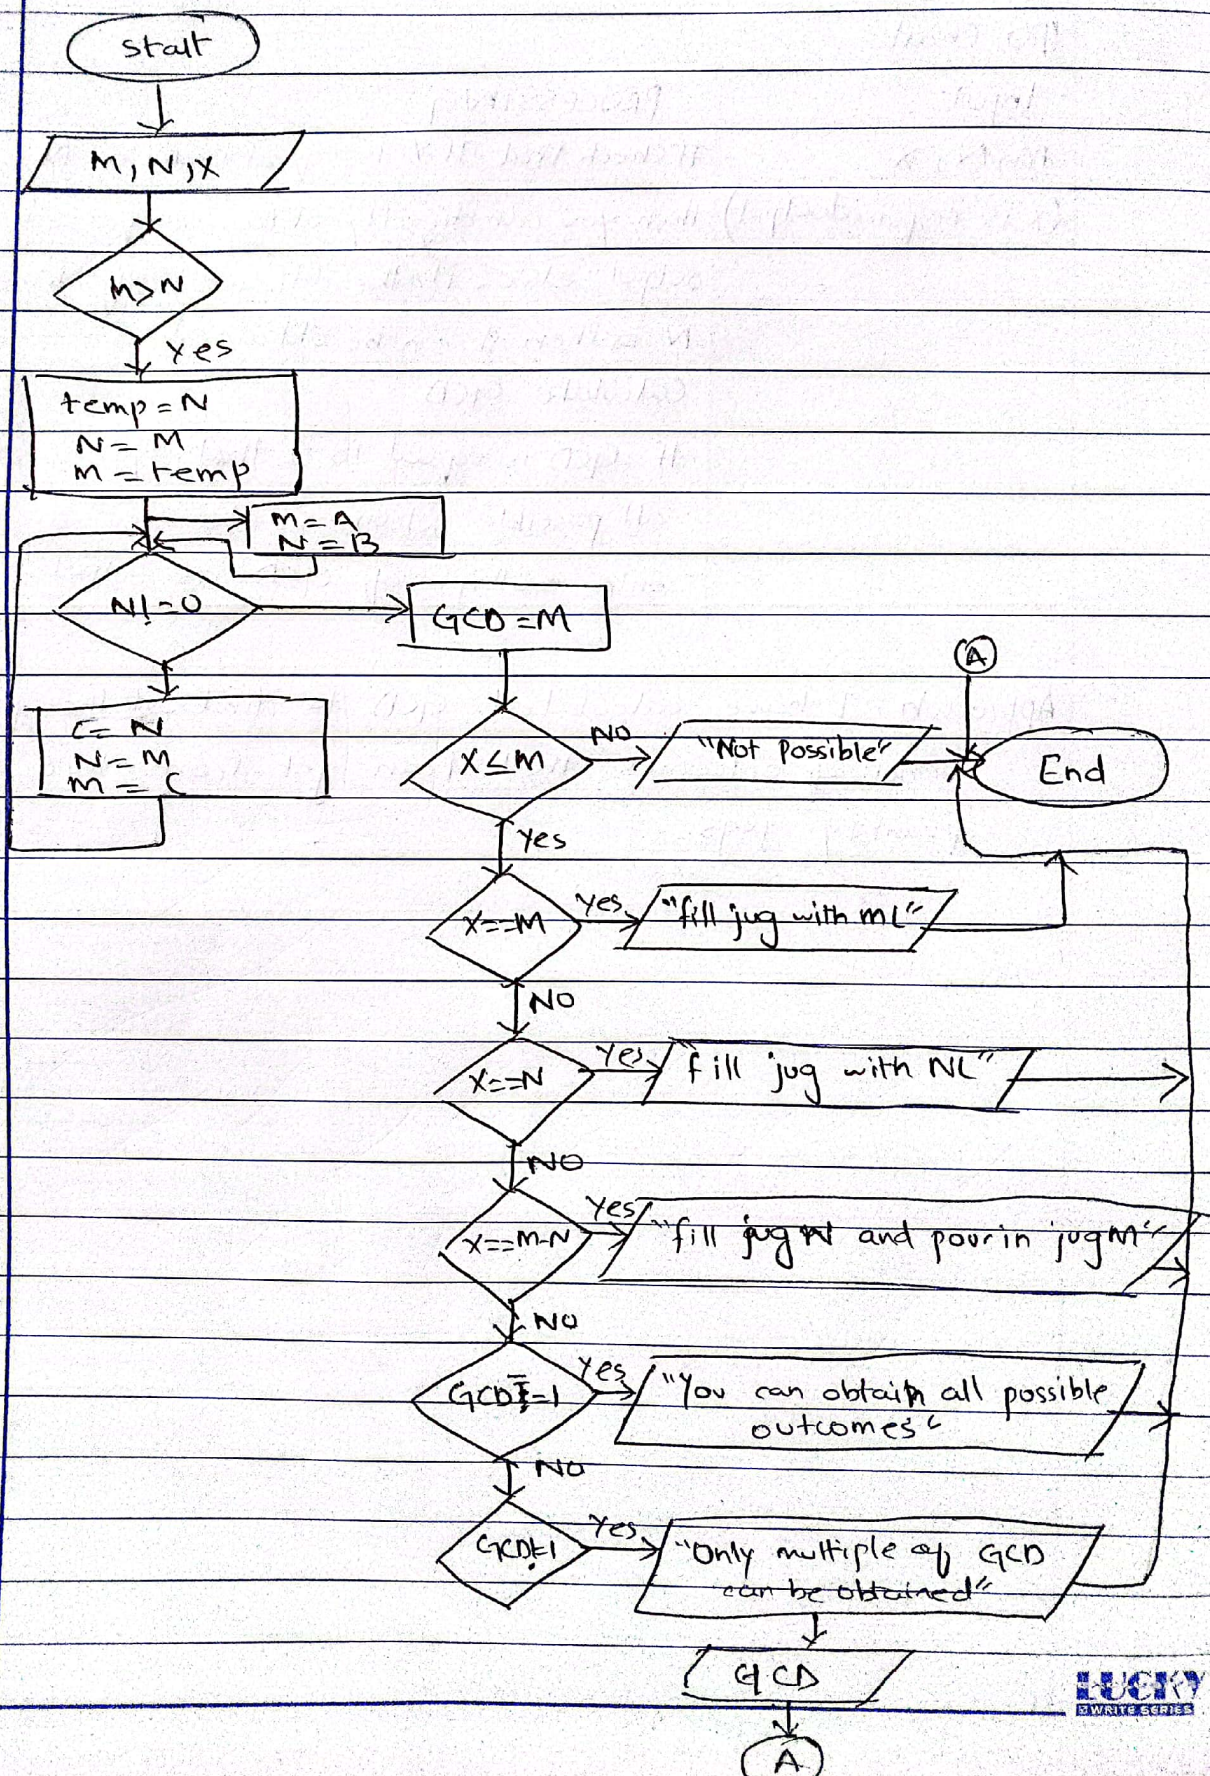 Start
M, N, X
M>N
Yes
temp = N
N = M
M = temp
M = A
N = B
N!=0
GCD = M
A
C = N
N = M
M = C
X≤M
NO
"Not possible"
End
Yes
X==M
Yes
"fill jug with ML"
NO
X==N
Yes
"fill jug with NL"
NO
X==M-N
Yes
"fill jug N and pour in jug M"
NO
GCD==1
Yes
"You can obtain all possible
outcomes"
NO
GCD!=1
Yes
"Only multiple of GCD
can be obtained"
GCD
LUCKY
WRITE SERIES
A